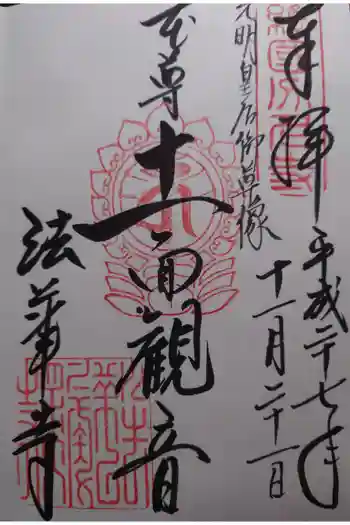 奉拝
平成二十七年
十一月二十一日
光明皇后御草像
本尊
十一面観音
法華寺